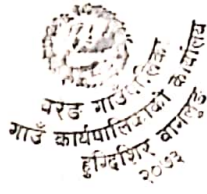 वरेङ गाउँपालिका
गाउँ कार्यपालिकाको कार्यालय
हुग्दिशिर बागलुङ
२०७३